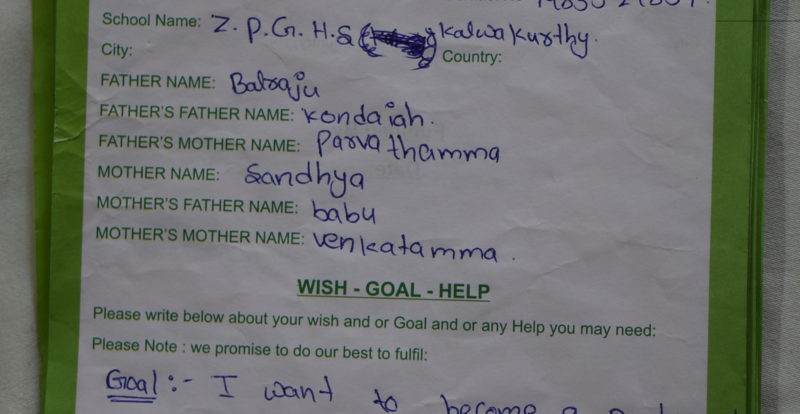 School Name: Z.P.G.H.S kalwakurthy.
City: Country:
FATHER NAME: Balraju
FATHER'S FATHER NAME: kondaiah.
FATHER'S MOTHER NAME: Parvathamma
MOTHER NAME: Sandhya
MOTHER'S FATHER NAME: babu
MOTHER'S MOTHER NAME: venkatamma.
WISH - GOAL - HELP
Please write below about your wish and or Goal and or any Help you may need:
Please Note : we promise to do our best to fulfil:
Goal :- I want to become a